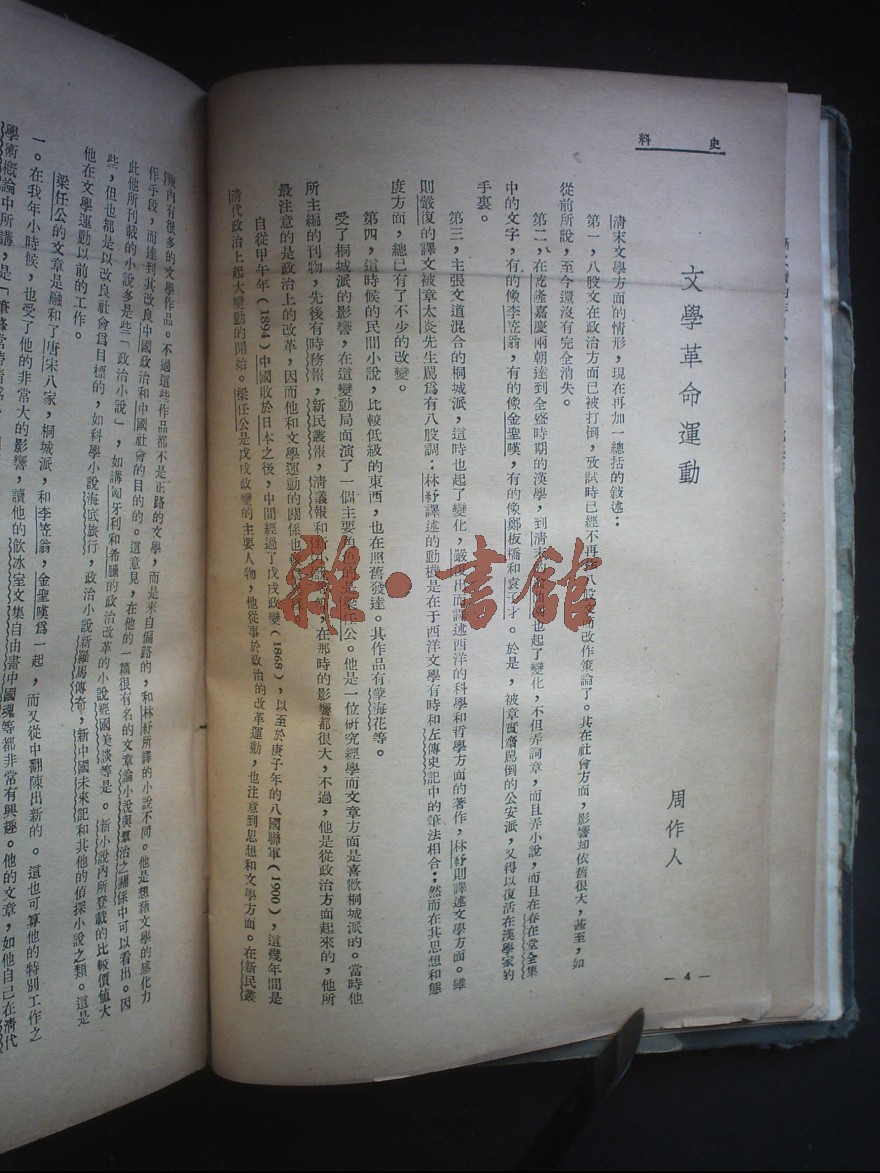 史料
文學革命運動
周作人
清末文學方面的情形，現在再加一總括的敍述：
第一，八股文在政治方面已被打倒，攷試時已經不再作八股文而改作策論了。其在社會方面，影響却依舊很大，甚至，如
從前所說，至今還沒有完全消失。
第二，在乾隆嘉慶兩朝達到全盛時期的漢學，到清末的也起了變化，不但弄詞章，而且弄小說，而且在春在堂全集
中的文字，有的像李笠翁，有的像金聖嘆，有的像鄭板橋和袁子才。於是，被章實齋罵倒的公安派，又得以復活在漢學家的
手裏。
第三，主張文道混合的桐城派，這時也起了變化，嚴復出而譯述西洋的科學和哲學方面的著作，林紓則譯述文學方面。雖
則嚴復的譯文被章太炎先生罵爲有八股調；林紓譯述的動機是在于西洋文學有時和左傳史記中的筆法相合；然而在其思想和態
度方面，總已有了不少的改變。
第四，這時候的民間小說，比較低級的東西，也在照舊發達。其作品有孽海花等。
受了桐城派的影響，在這變動局面演了一個主要角色的是梁任公。他是一位研究經學而文章方面是喜歡桐城派的。當時他
所主編的刊物，先後有時務報，新民叢報，清議報和新小說等，在那時的影響都很大，不過，他是從政治方面起來的，他所
最注意的是政治上的改革，因而他和文學運動的關係也
自從甲午年（1894）中國敗於日本之後，中間經過了戊戌政變（1868），以至於庚子年的八國聯軍（1900），這幾年間是
清代政治上起大變動的開始。梁任公是戊戌政變的主要人物，他從事於政治的改革運動，也注意到思想和文學方面。在新民叢
—4—
報內有很多的文學作品。不過這些作品都不是正路的文學，而是來自偏路的，和林紓所譯的小說不同。他是想藉文學的感化力
作手段，而達到其改良中國政治和中國社會的目的的。這意見，在他的一篇很有名的文章論小說與羣治之關係中可以看出。因
此他所刊載的小說多是些「政治小說」，如講匈牙利和希臘的政治改革的小說經國美談等是。新小說內所登載的比較價値大
些，但也都是以改良社會爲目標的，如科學小說海底旅行，政治小說新羅馬傳奇，新中國未來記和其他的偵探小說之類。這是
他在文學運動以前的工作。
梁任公的文章是融和了唐宋八家，桐城派，和李笠翁，金聖嘆爲一起，而又從中翻陳出新的。這也可算他的特別工作之
一。在我年小時候，也受了他的非常大的影響，讀他的飲冰室文集自由書中國魂等都非常有興趣。他的文章，如他自己在清代
學術概論中所講，是「筆鋒常帶情感
雜·書館